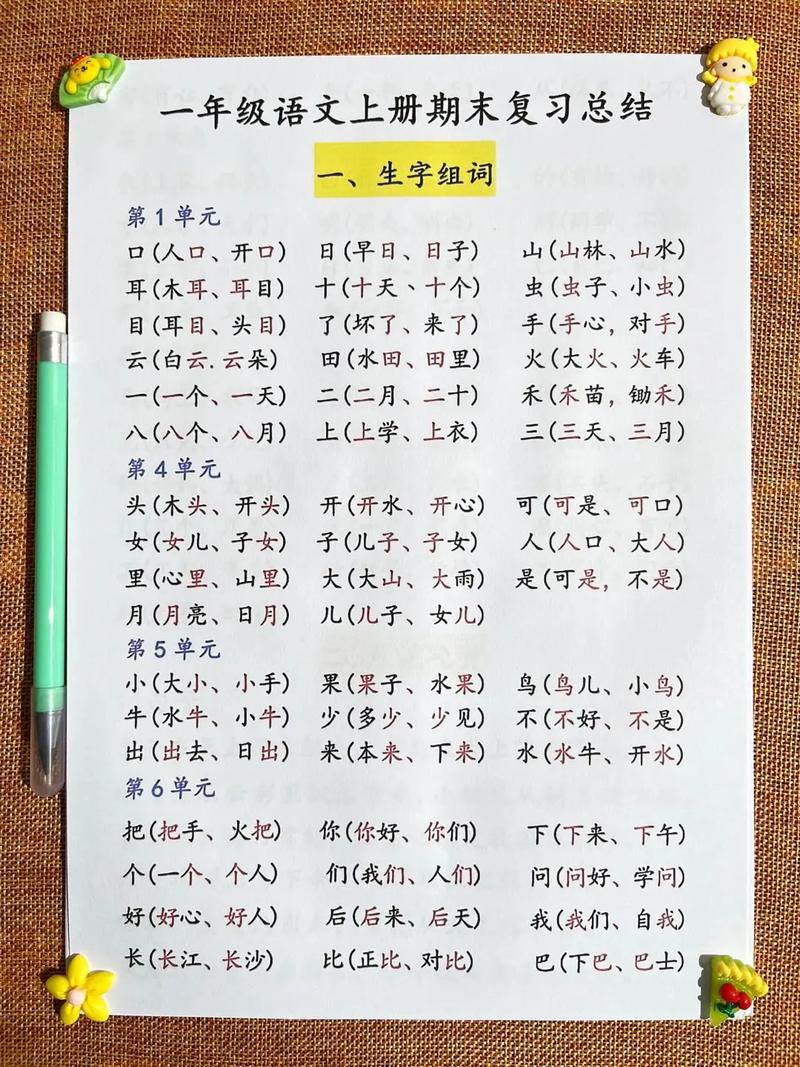 一年级语文上册期末复习总结
一、生字组词
第1单元
口(人口、开口) 日(早日、日子) 山(山林、山水)
耳(木耳、耳目) 十(十天、十个) 虫(虫子、小虫)
目(耳目、头目) 了(坏了、来了) 手(手心，对手)
云(白云.云朵) 田(水田、田里) 火(大火、火车)
一(一个、一天) 二(二月、二十) 禾(禾苗，锄禾)
八(八个、八月) 上(上学、上衣) 三(三天、三月)
第4单元
头(木头、开头) 开(开水、开心) 可(可是、可口)
女(女儿、子女) 子(儿子、子女) 人(人口、大人)
里(心里、山里) 大(大山、大雨) 是(可是，不是)
月(月亮、日月) 儿(儿子、女儿)
第5单元
小(大小、小手) 果(果子、水果) 鸟(鸟儿、小鸟)
牛(水牛、小牛) 少(多少、少见) 不(不好、不是)
出(出去、日出) 来(本来、下来) 水(水牛、开水)
第6单元
把(把手、火把) 你(你好、你们) 下(下来、下午)
个(一个、个人) 们(我们、人们) 问(问好、学问)
好(好心、好人) 后(后来、后天) 我(我们、自我)
长(长江、长沙) 比(正比、对比) 巴(下巴、巴士)